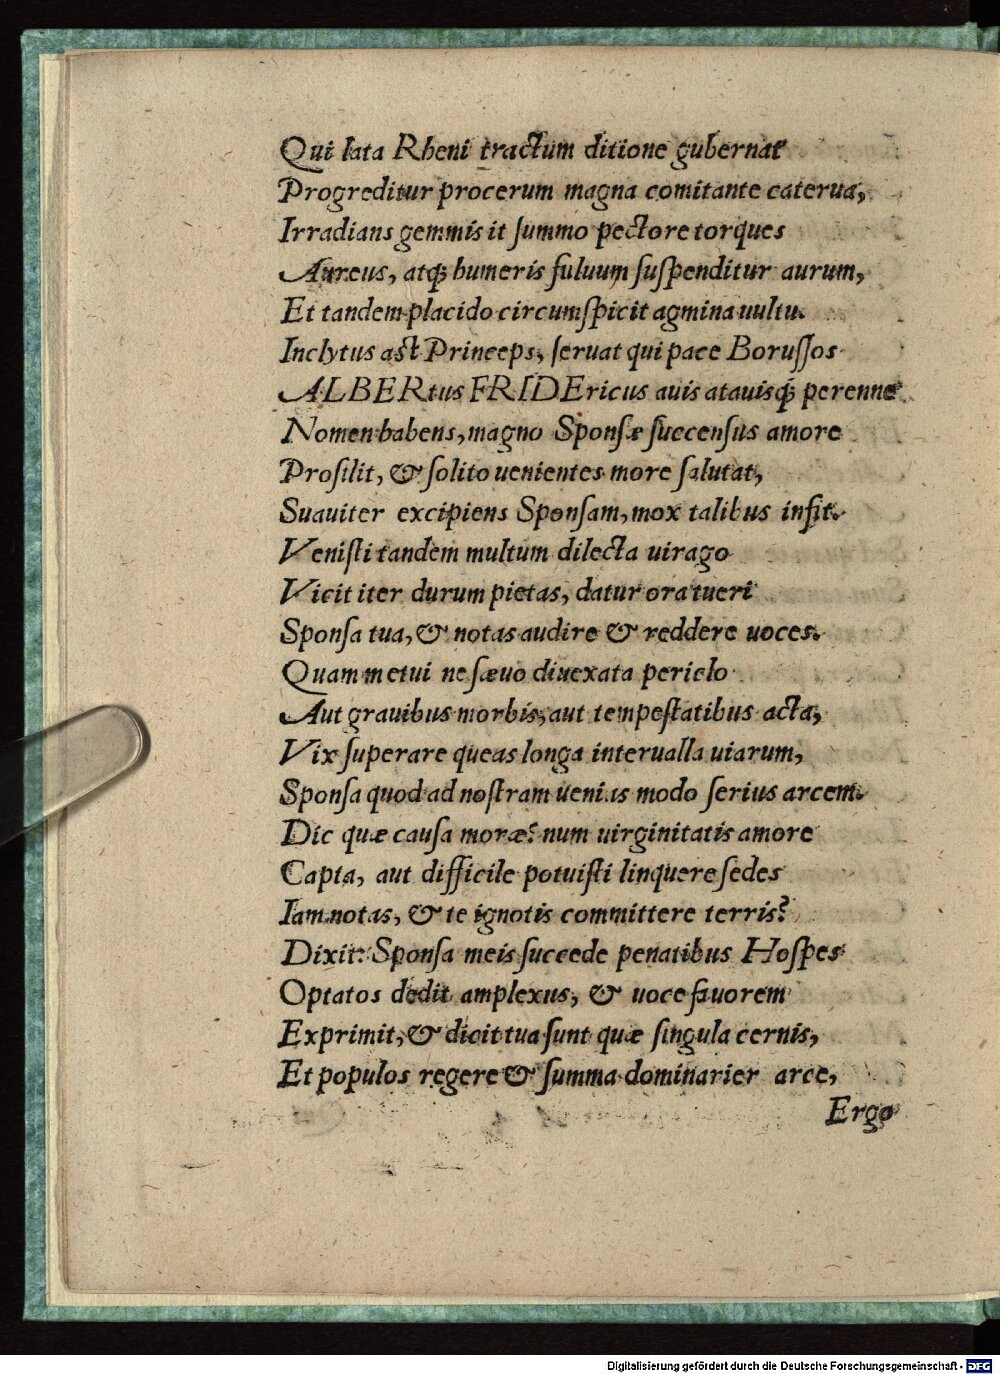 Qui lata Rheni tractum ditione gubernat
Progreditur procerum magna comitante caterua,
Irradians gemmis it summo pectore torques
Aureus, atq; humeris fuluum suspenditur aurum,
Et tandem placido circumspicit agmina uultu.
Inclytus ast Princeps, seruat qui pace Borussos
ALBERtus FRIDEricus auis atauisq; perenne
Nomen habens, magno Sponsæ succensus amore
Prosilit, & solito uenientes more salutat,
Suauiter excipiens Sponsam, mox talibus infit.
Venisti tandem multum dilecta uirago
Vicit iter durum pietas, datur ora tueri
Sponsa tua, & notas audire & reddere uoces.
Quam metui ne sæuo diuexata periclo
Aut grauibus morbis, aut tempestatibus acta,
Vix superare queas longa interualla uiarum,
Sponsa quod ad nostram uenias modo serius arcem.
Dic quæ causa moræ? num uirginitatis amore
Capta, aut difficile potuisti linquere sedes
Iam notas, & te ignotis committere terris?
Dixit: Sponsa meis succede penatibus Hospes
Optatos dedit amplexus, & uoce fauorem
Exprimit, & dicit tua sunt quæ singula cernis,
Et populos regere & summa dominarier arce,
Ergo
Digitalisierung gefördert durch die Deutsche Forschungsgemeinschaft - DFG